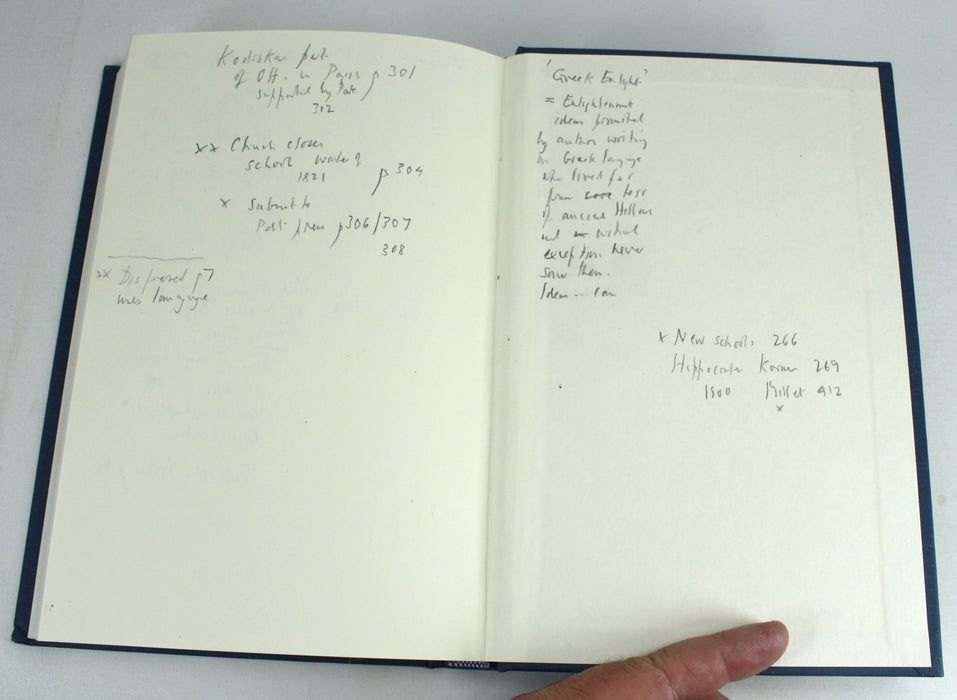 pat.
of Ott. in Paris p 301
supported by Pat.
312
xx Church closes
school
1821 p 304
x Submit to
p306/307
308
xx Dispersed p7
uses language
'Greek Enlight'
= Enlightenment
ideas promoted
by author writing
in Greek language
who lived far
from
of ancient Hellas
and
exception never
saw them.
Ideas ...
x New schools 266
Hippocrates 269
1800 Millet 412
x